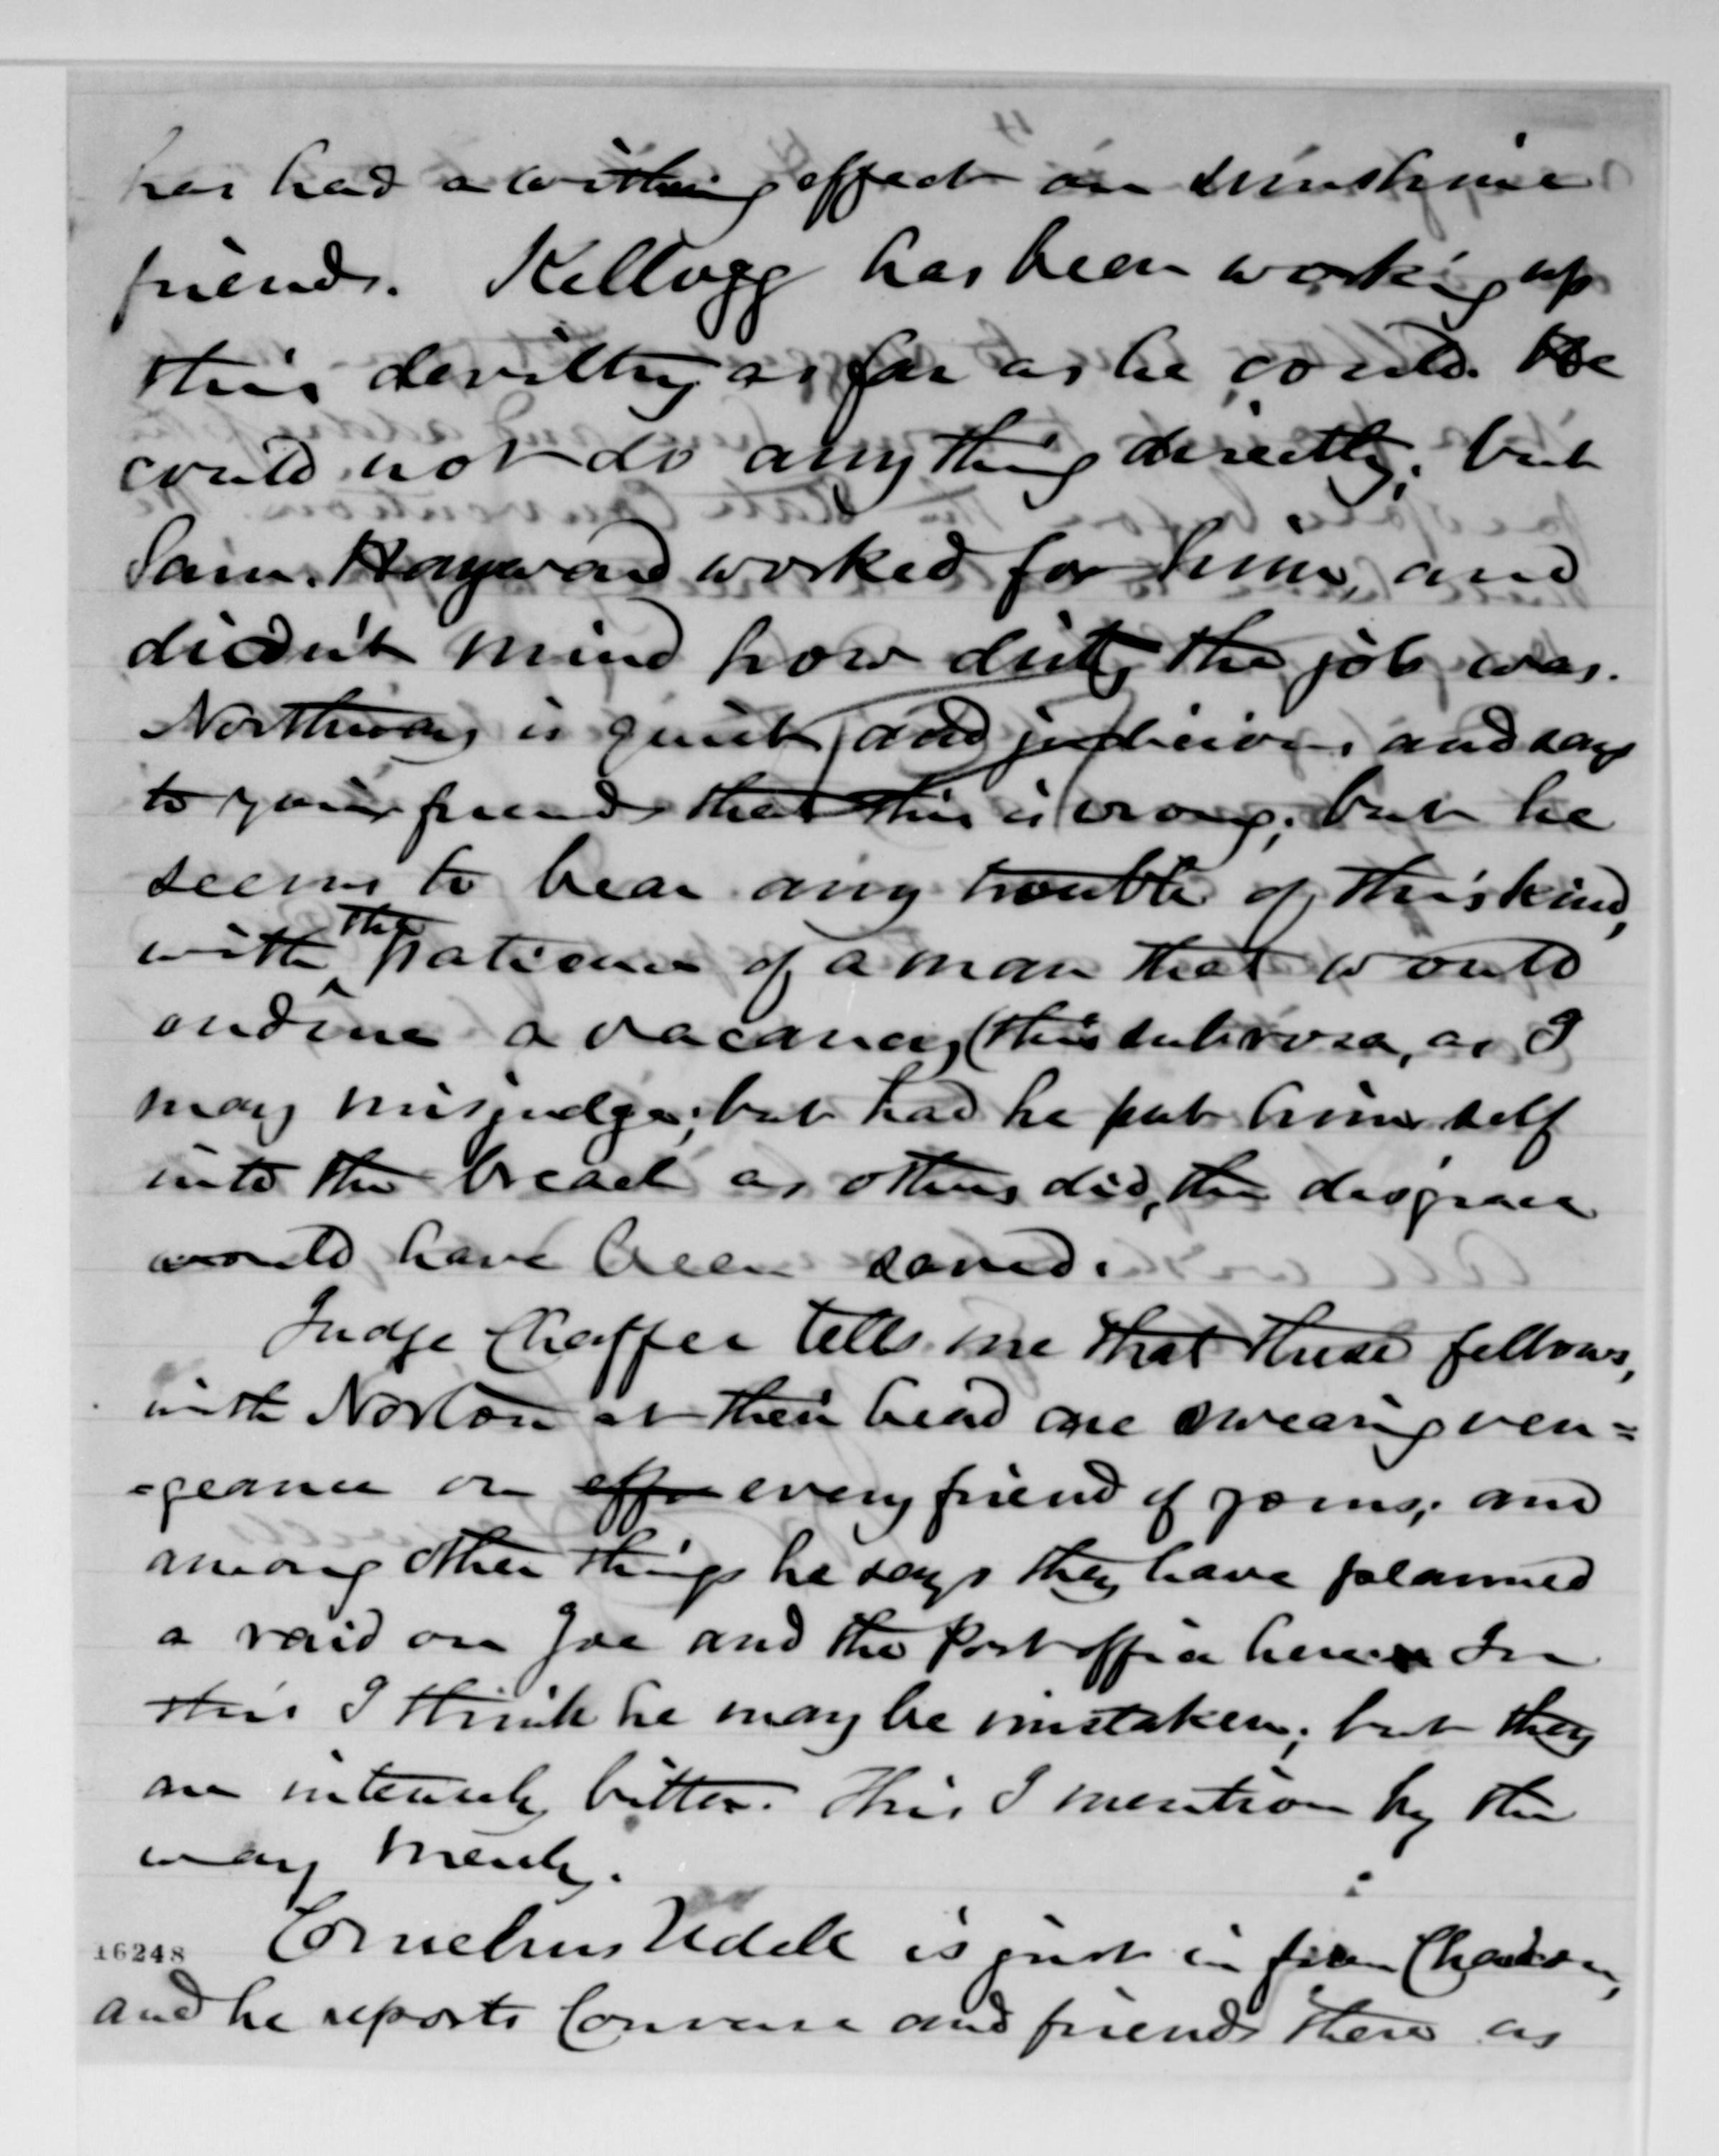 has had a withering effect on sunshine
friends. Kellogg has been working up
this deviltry as far as he could. He
could not do anything directly; but
Sam. Hayward worked for him, and
didn't mind how dirty the job was.
Northway is quiet, and judicious, and says
to your friends that this is wrong; but he
seems to bear any trouble of this kind,
with the patience of a man that would
endure a vacancy, (this sub rosa, as I
may misjudge; but had he put himself
into the breach as others did, the disgrace
would have been saved.
Judge Chaffee tells me that these fellows,
with Norton at their head are swearing ven=
=geance on effo every friend of yours; and
among other things he says they have planned
a raid on Joe and the Post office here. In
this I think he may be mistaken; but they
are intensely bitter. This I mention by the
way merely.
Cornelius Udell is just in from Chardon,
16248
and he reports Converse and friends there as